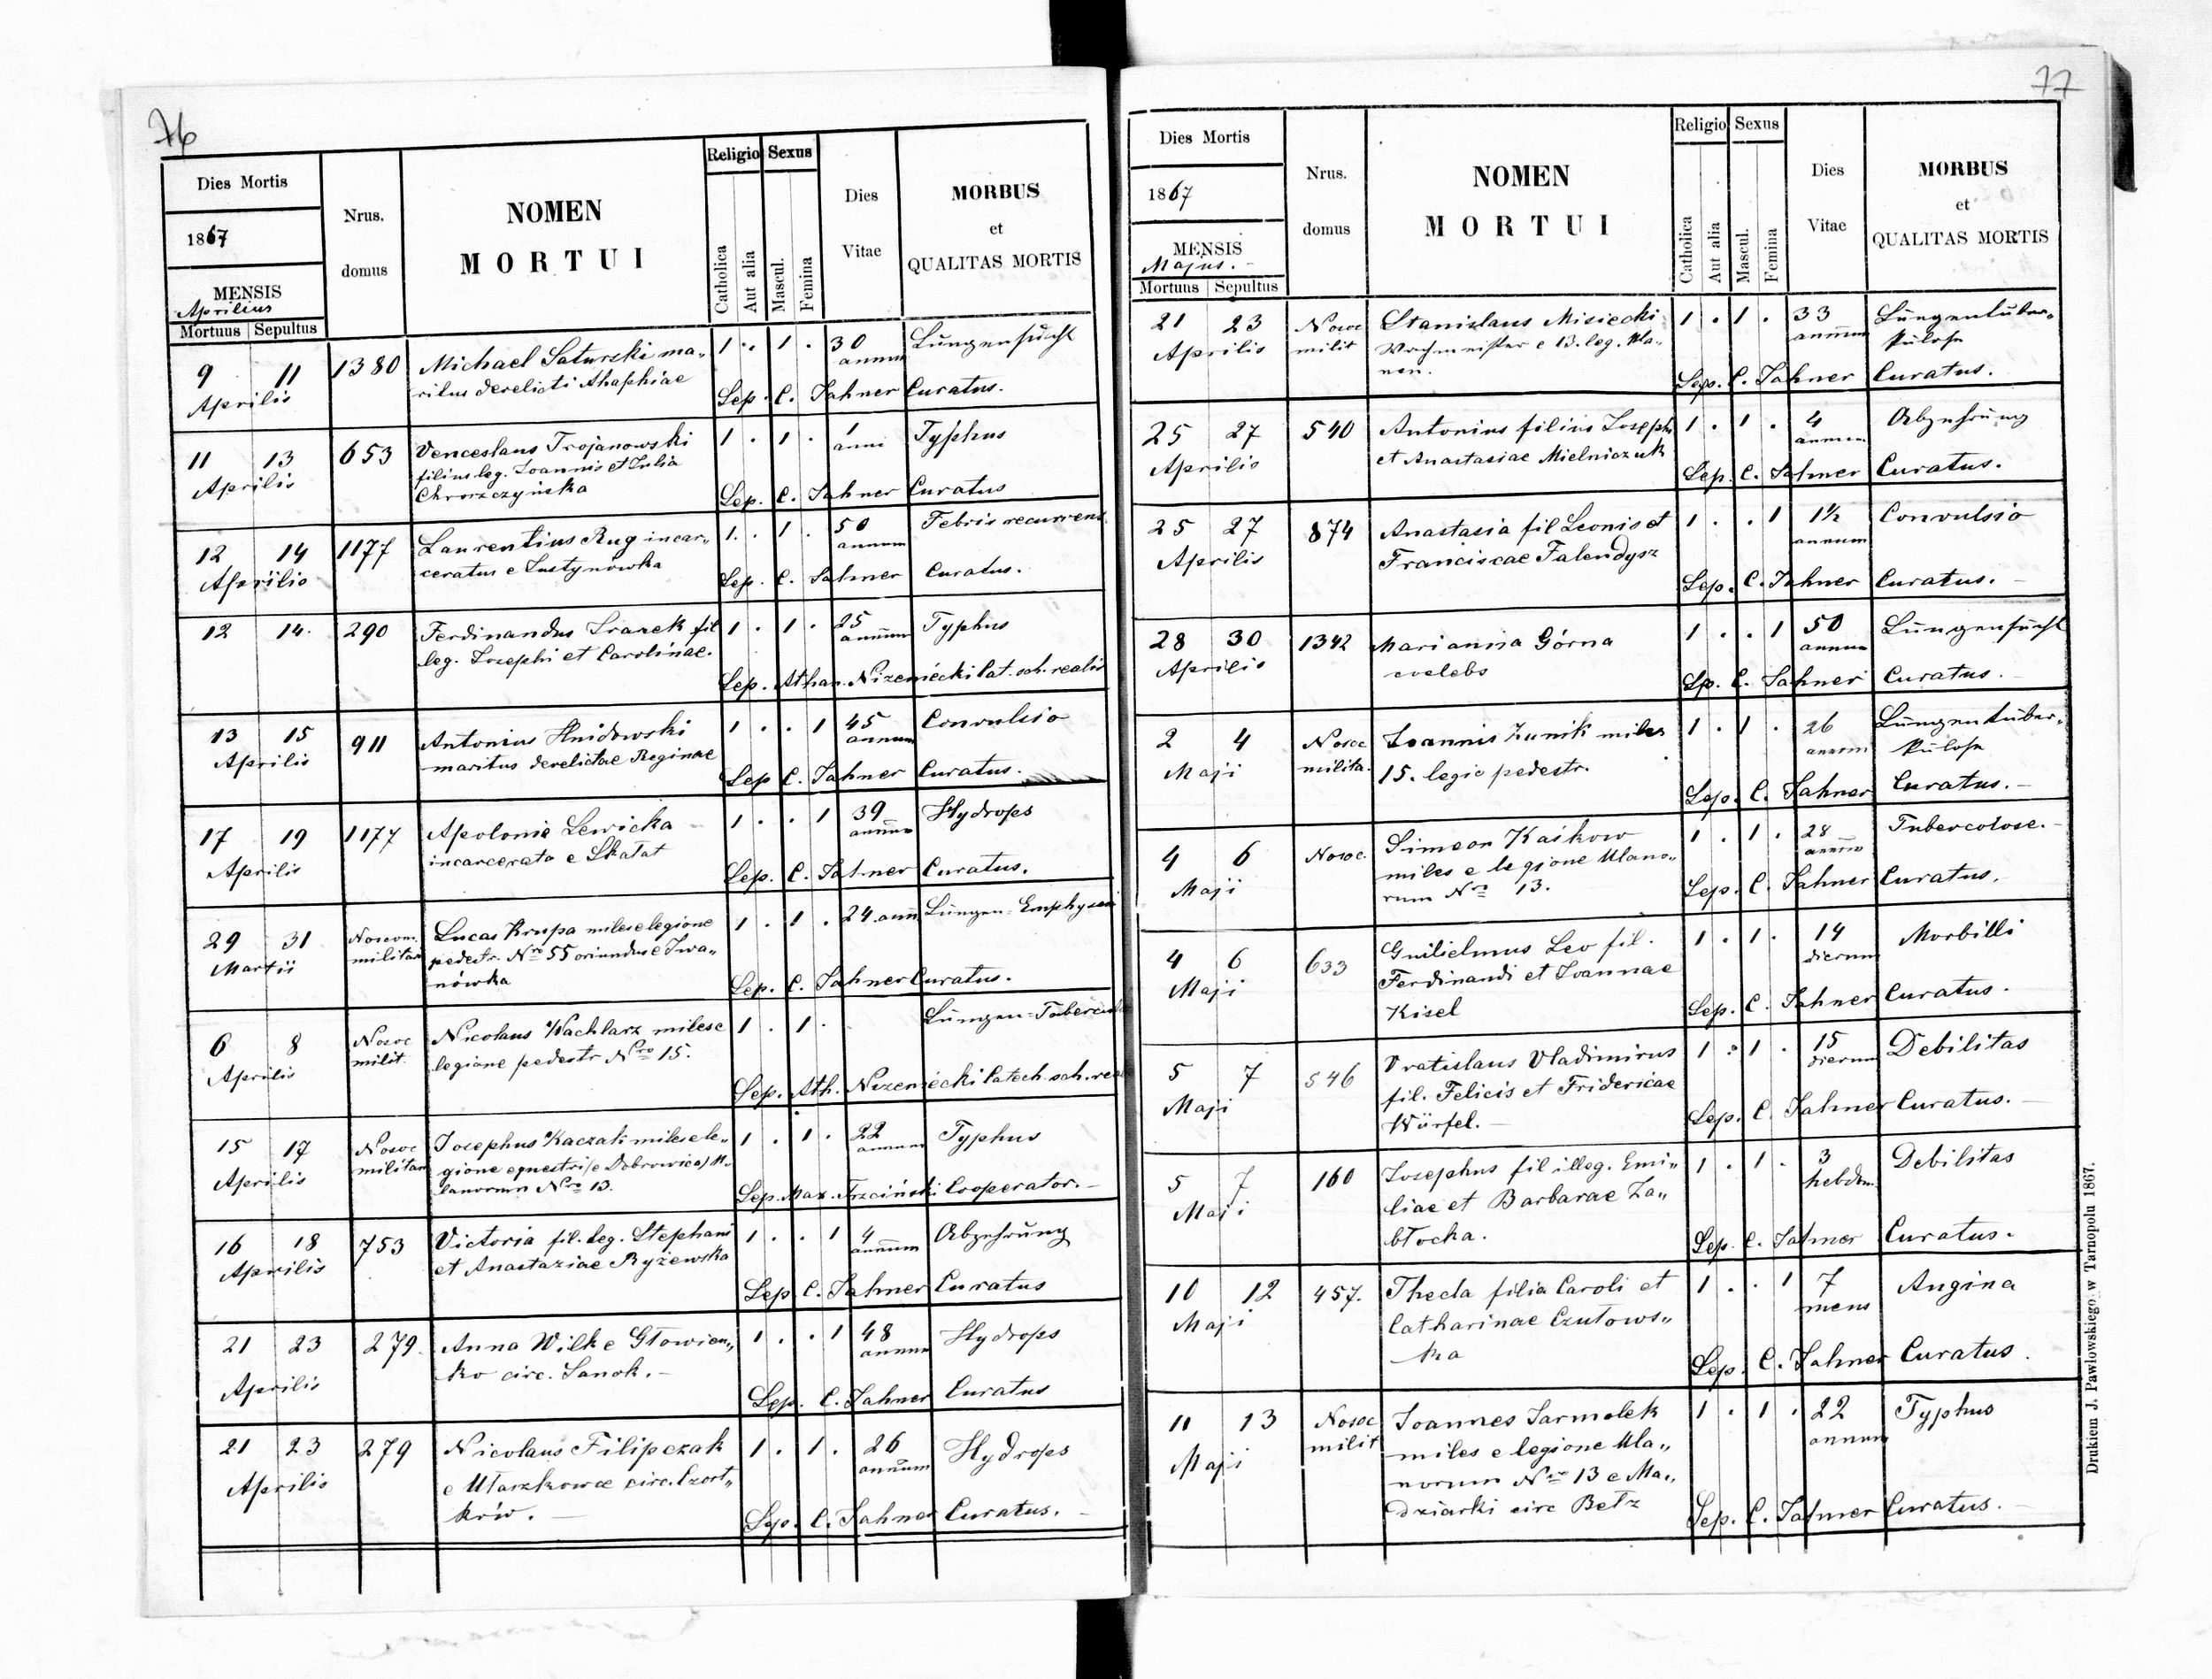 76
Dies Mortis
1867
MENSIS
Aprilius
Mortuus Sepultus
Nrus.
domus
NOMEN
MORTUI
Religio Sexus
Catholica
Aut alia
Mascul.
Femina
Dies
Vitae
MORBUS
et
QUALITAS MORTIS
9 11 1380 Michael Saturski ma„ 1 . 1 . 30 Lungensucht
Aprilis ritus derelicti Ahaphiae annum
Sep. C. Jahner Curatus.
11 13 653 Venceslaus Trojanowski 1 . 1 . 1 Typhus
Aprilis filius leg. Joannis et Julia anni
Chroszczyńska Sep. C. Jahner Curatus
12 14 1177 Laurentius Rug incar„ 1 . 1 . 50 Febris recurrens
Aprilis ceratus e Justynówka annum
Sep. C. Jahner Curatus.
12 14. 290 Ferdinandus Sranek fil 1 . 1 . 25 Typhus
leg. Josephi et Carolinae. annum
Sep. Athan. Nizeniecki Cat. sch. realis
13 15 911 Antonius Hnidowski 1 . . 1 45 Convulsio
Aprilis maritus derelictae Reginae annum
Sep C. Jahner Curatus.
17 19 1177 Apolonia Lewicka 1 . . 1 39 Hydrops
Aprilis incarcerata e Skałat annum
Sep. C. Jahner Curatus.
29 31 Nosocom. Lucas Krupa miles e legione 1 . 1 . 24 ann Lungen-Emphysem
Martii militar pedestr. Nro 55 oriundus e Iwa„
nówka Sep. C. Jahner Curatus.
6 8 Nosoc Nicolaus Wachlarz miles e 1 . 1 . Lungen-Tubercul
Aprilis milit. legione pedestr Nro 15.
Sep. Ath. Nizeniecki Catech. sch. re
15 17 Nosoc Josephus Kaczati miles e le„ 1 . 1 . 22 Typhus
Aprilis militar gione equestri /e Dobrowica/ U„ annum
lanorum Nro 13. Sep. Max. Trzciński Cooperator.-
16 18 753 Victoria fil. leg. Stephani 1 . . 1 4 Abzehrung
Aprilis et Anastaziae Ryżewska annum
Sep C. Jahner Curatus
21 23 279. Anna Wilk e Głowien„ 1 . . 1 48 Hydrops
Aprilis ko circ. Sanok.- annum
Sep. C. Jahner Curatus
21 23 279 Nicolaus Filipczak 1 . 1 . 26 Hydrops
Aprilis e Ułaszkowce circ. Czort„ annum
ków. - Sep. C. Jahner Curatus.
77
Dies Mortis
1867
MENSIS
Majus.-
Mortuus Sepultus
Nrus.
domus
NOMEN
MORTUI
Religio Sexus
Catholica
Aut alia
Mascul.
Femina
Dies
Vitae
MORBUS
et
QUALITAS MORTIS
21 23 Nosoc Stanislaus Misiecki 1 . 1 . 33 Lungentuber„
Aprilis milit Wachmeister e 13. leg. Ula„ annum kulose
nen. Sep. C. Jahner Curatus.
25 27 540 Antonius filius Joseph 1 . 1 . 4 Abzehrung
Aprilis et Anastasiae Mielniczuk annum
Sep. C. Jahner Curatus.
25 27 874 Anastasia fil Leonis et 1 . . 1 1½ Convulsio
Aprilis Franciscae Falendysz annum
Sep. C. Jahner Curatus. -
28 30 1342 Marianna Górna 1 . . 1 50 Lungensucht
Aprilis coelebs annum
Sp. C. Jahner Curatus.
2 4 Nosoc Joannis Zunik miles 1 . 1 . 26 Lungentuber„
Maji milita. 15. legio pedestr. annum kulose
Sep. C. Jahner Curatus.-
4 6 Nosoc. Simeon Kaśkow 1 . 1 . 28 Tubercolose.-
Maji miles e legione Ulano„ annum
rum Nro 13. Sep. C. Jahner Curatus.
4 6 633 Guilielmus Leo fil. 1 . 1 . 14 Morbilli
Maji Ferdinandi et Joannae dierum
Kisel Sep. C. Jahner Curatus.
5 7 546 Vratislaus Vladimirus 1 . 1 . 15 Debilitas
Maji fil. Felicis et Fridericae dierum
Würfel.- Sep. C. Jahner Curatus.-
5 7 160 Josephus fil illeg. Emi„ 1 . 1 . 3 Debilitas
Maji liae et Barbarae Za„ hebdom.
błocka. Sep. C. Jahner Curatus.
10 12 457. Thecla filia Caroli et 1 . . 1 7 Angina
Maji Catharinae Czutows„ mens
ka Sep. C. Jahner Curatus.
11 13 Nosoc Joannes Jarmolek 1 . 1 . 22 Typhus
Maji milit miles e legione Ula„ annum
norum Nro 13 e Ma„
dziarki circ Bełz Sep. C. Jahner Curatus. -
Drukiem J. Pawłowskiego w Tarnopolu 1867.